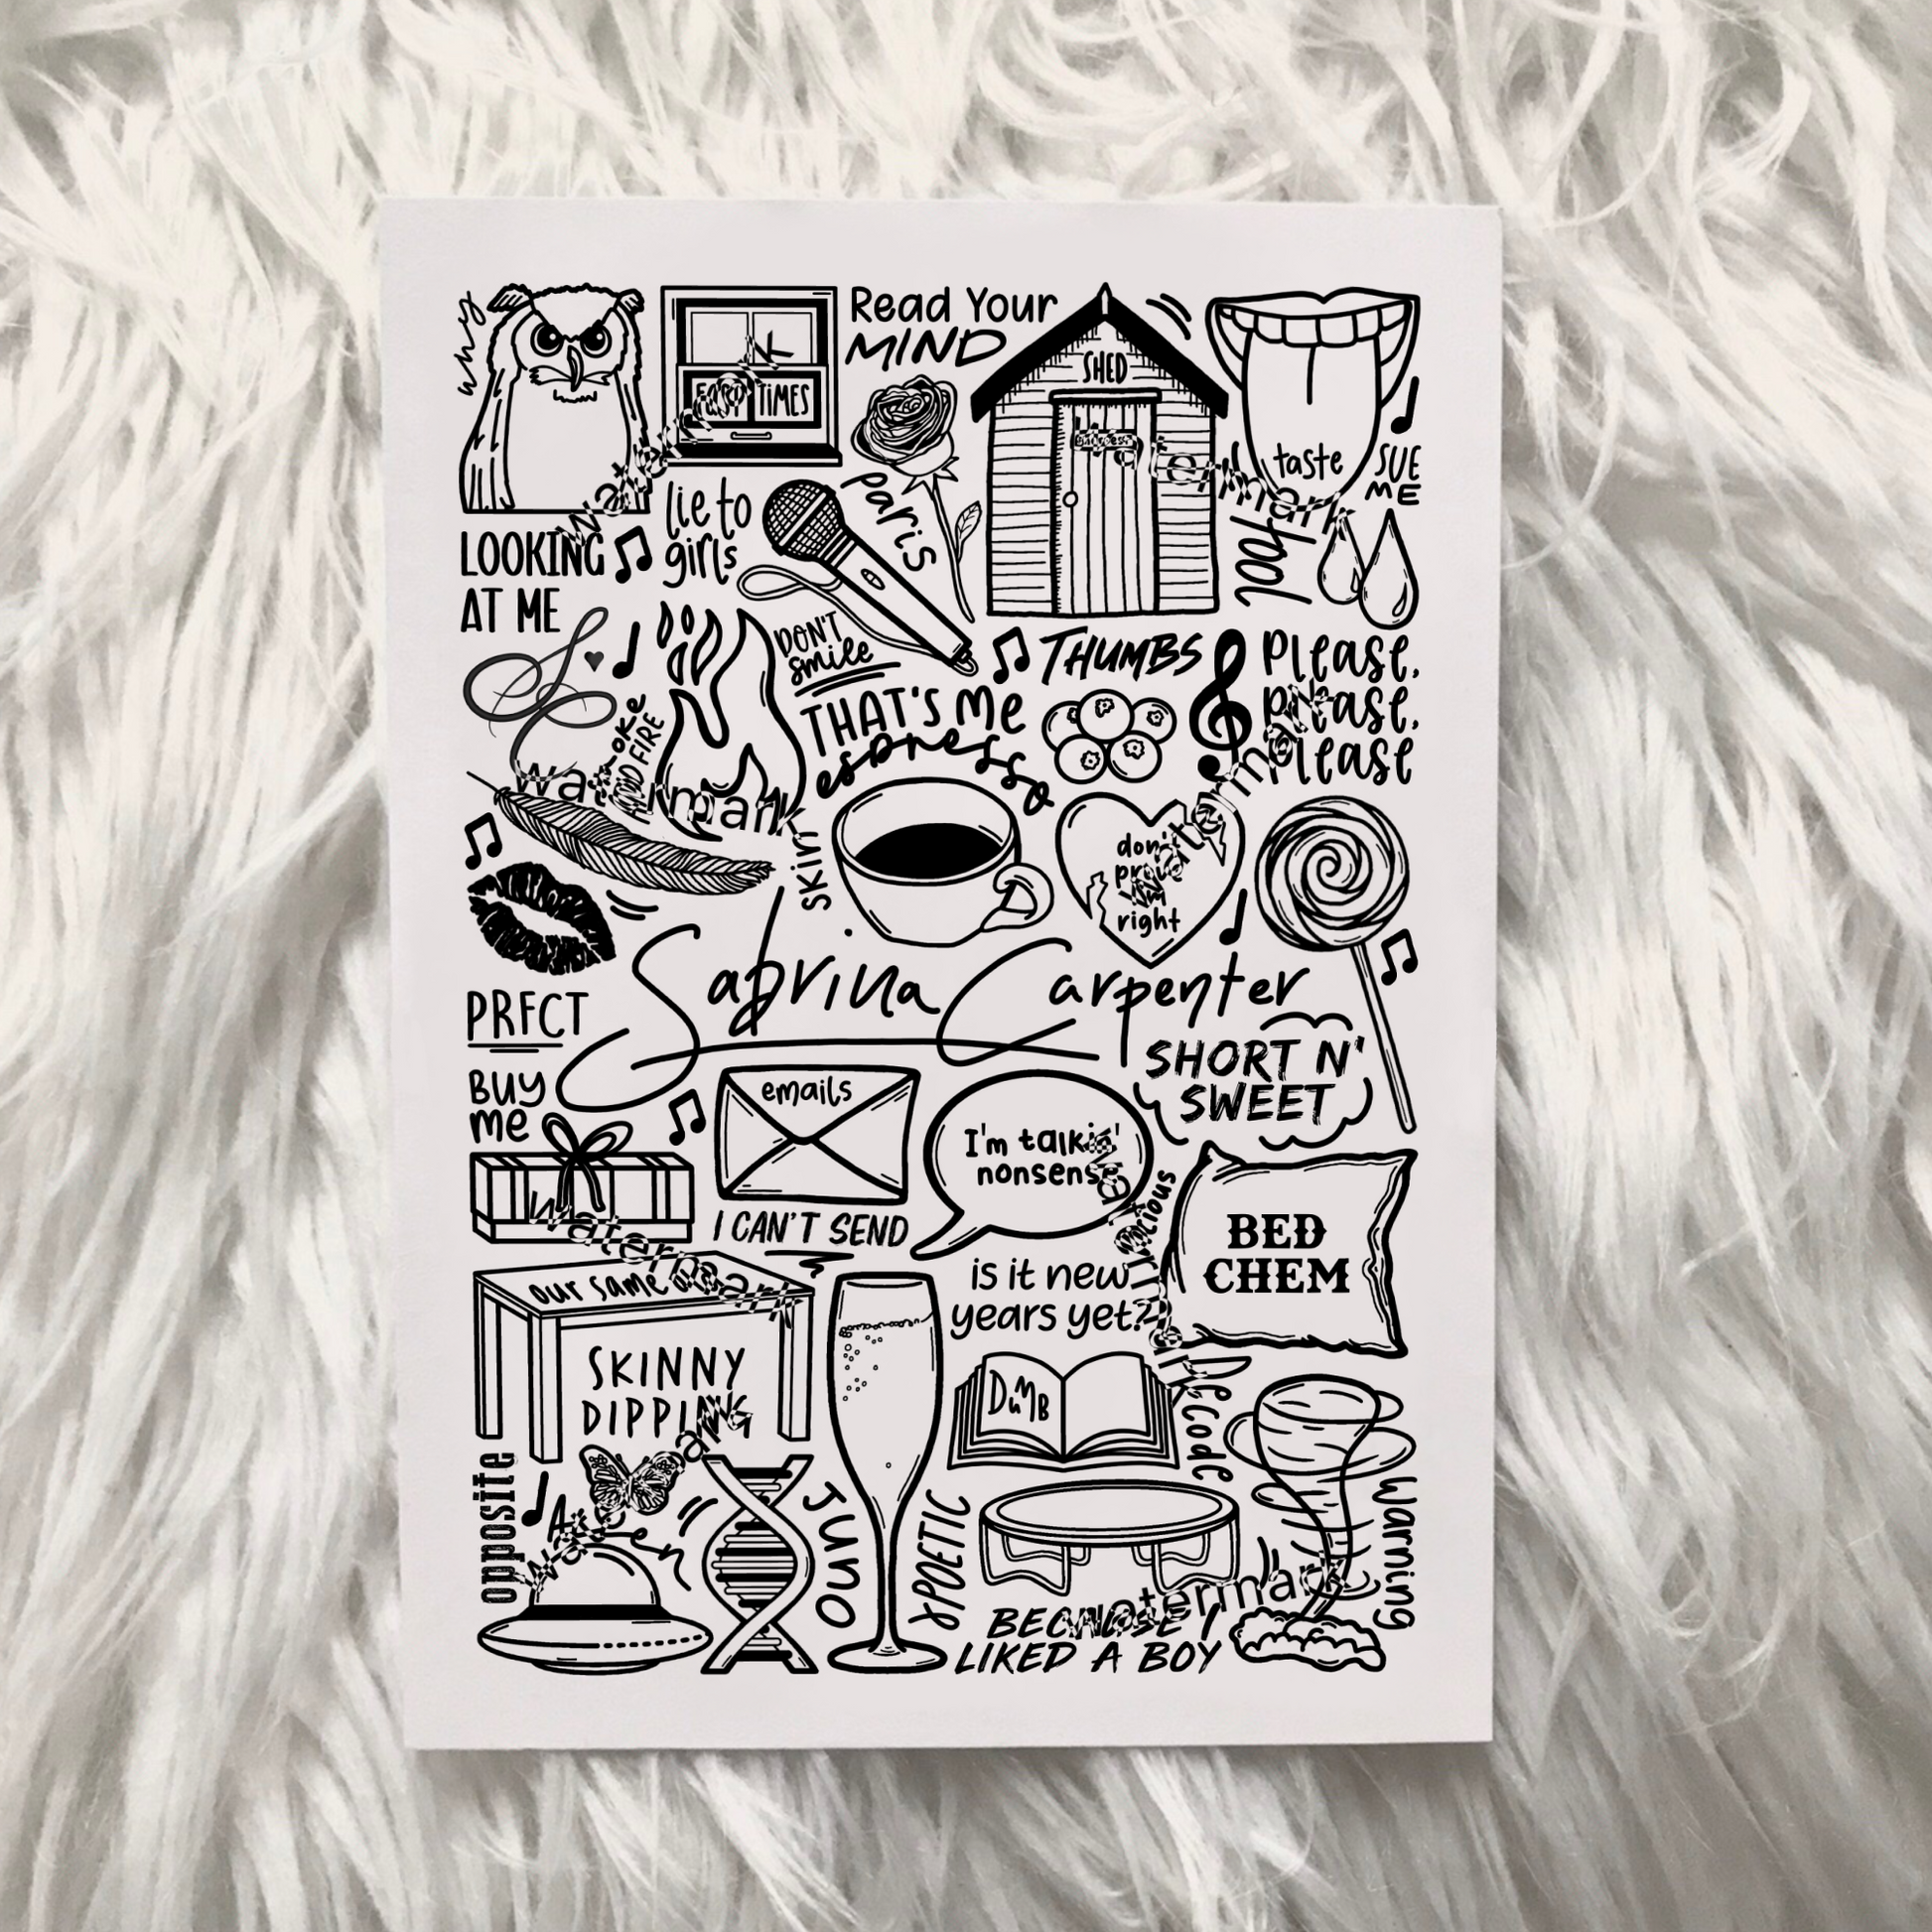 why
Read Your
MIND
SHED
TIMES
taste
SUE
ME
paris
lie to
girls
tool
LOOKING
AT ME
DON'T
smile
THUMBS
Please,
please,
please
THAT'S Me
espresso
AND FIRE
watermark
skin
don't
prove
right
Sabrina Carpenter
PRFCT
SHORT N'
SWEET
BUY
me
emails
I'm talkin'
nonsense
I CAN'T SEND
BED
CHEM
watermark
our same
is it new
years yet?
SKINNY
DIPPING
DuMB
Decode
opposite
Juno
XPOETIC
warning
watermark
BECAUSE I
LIKED A BOY